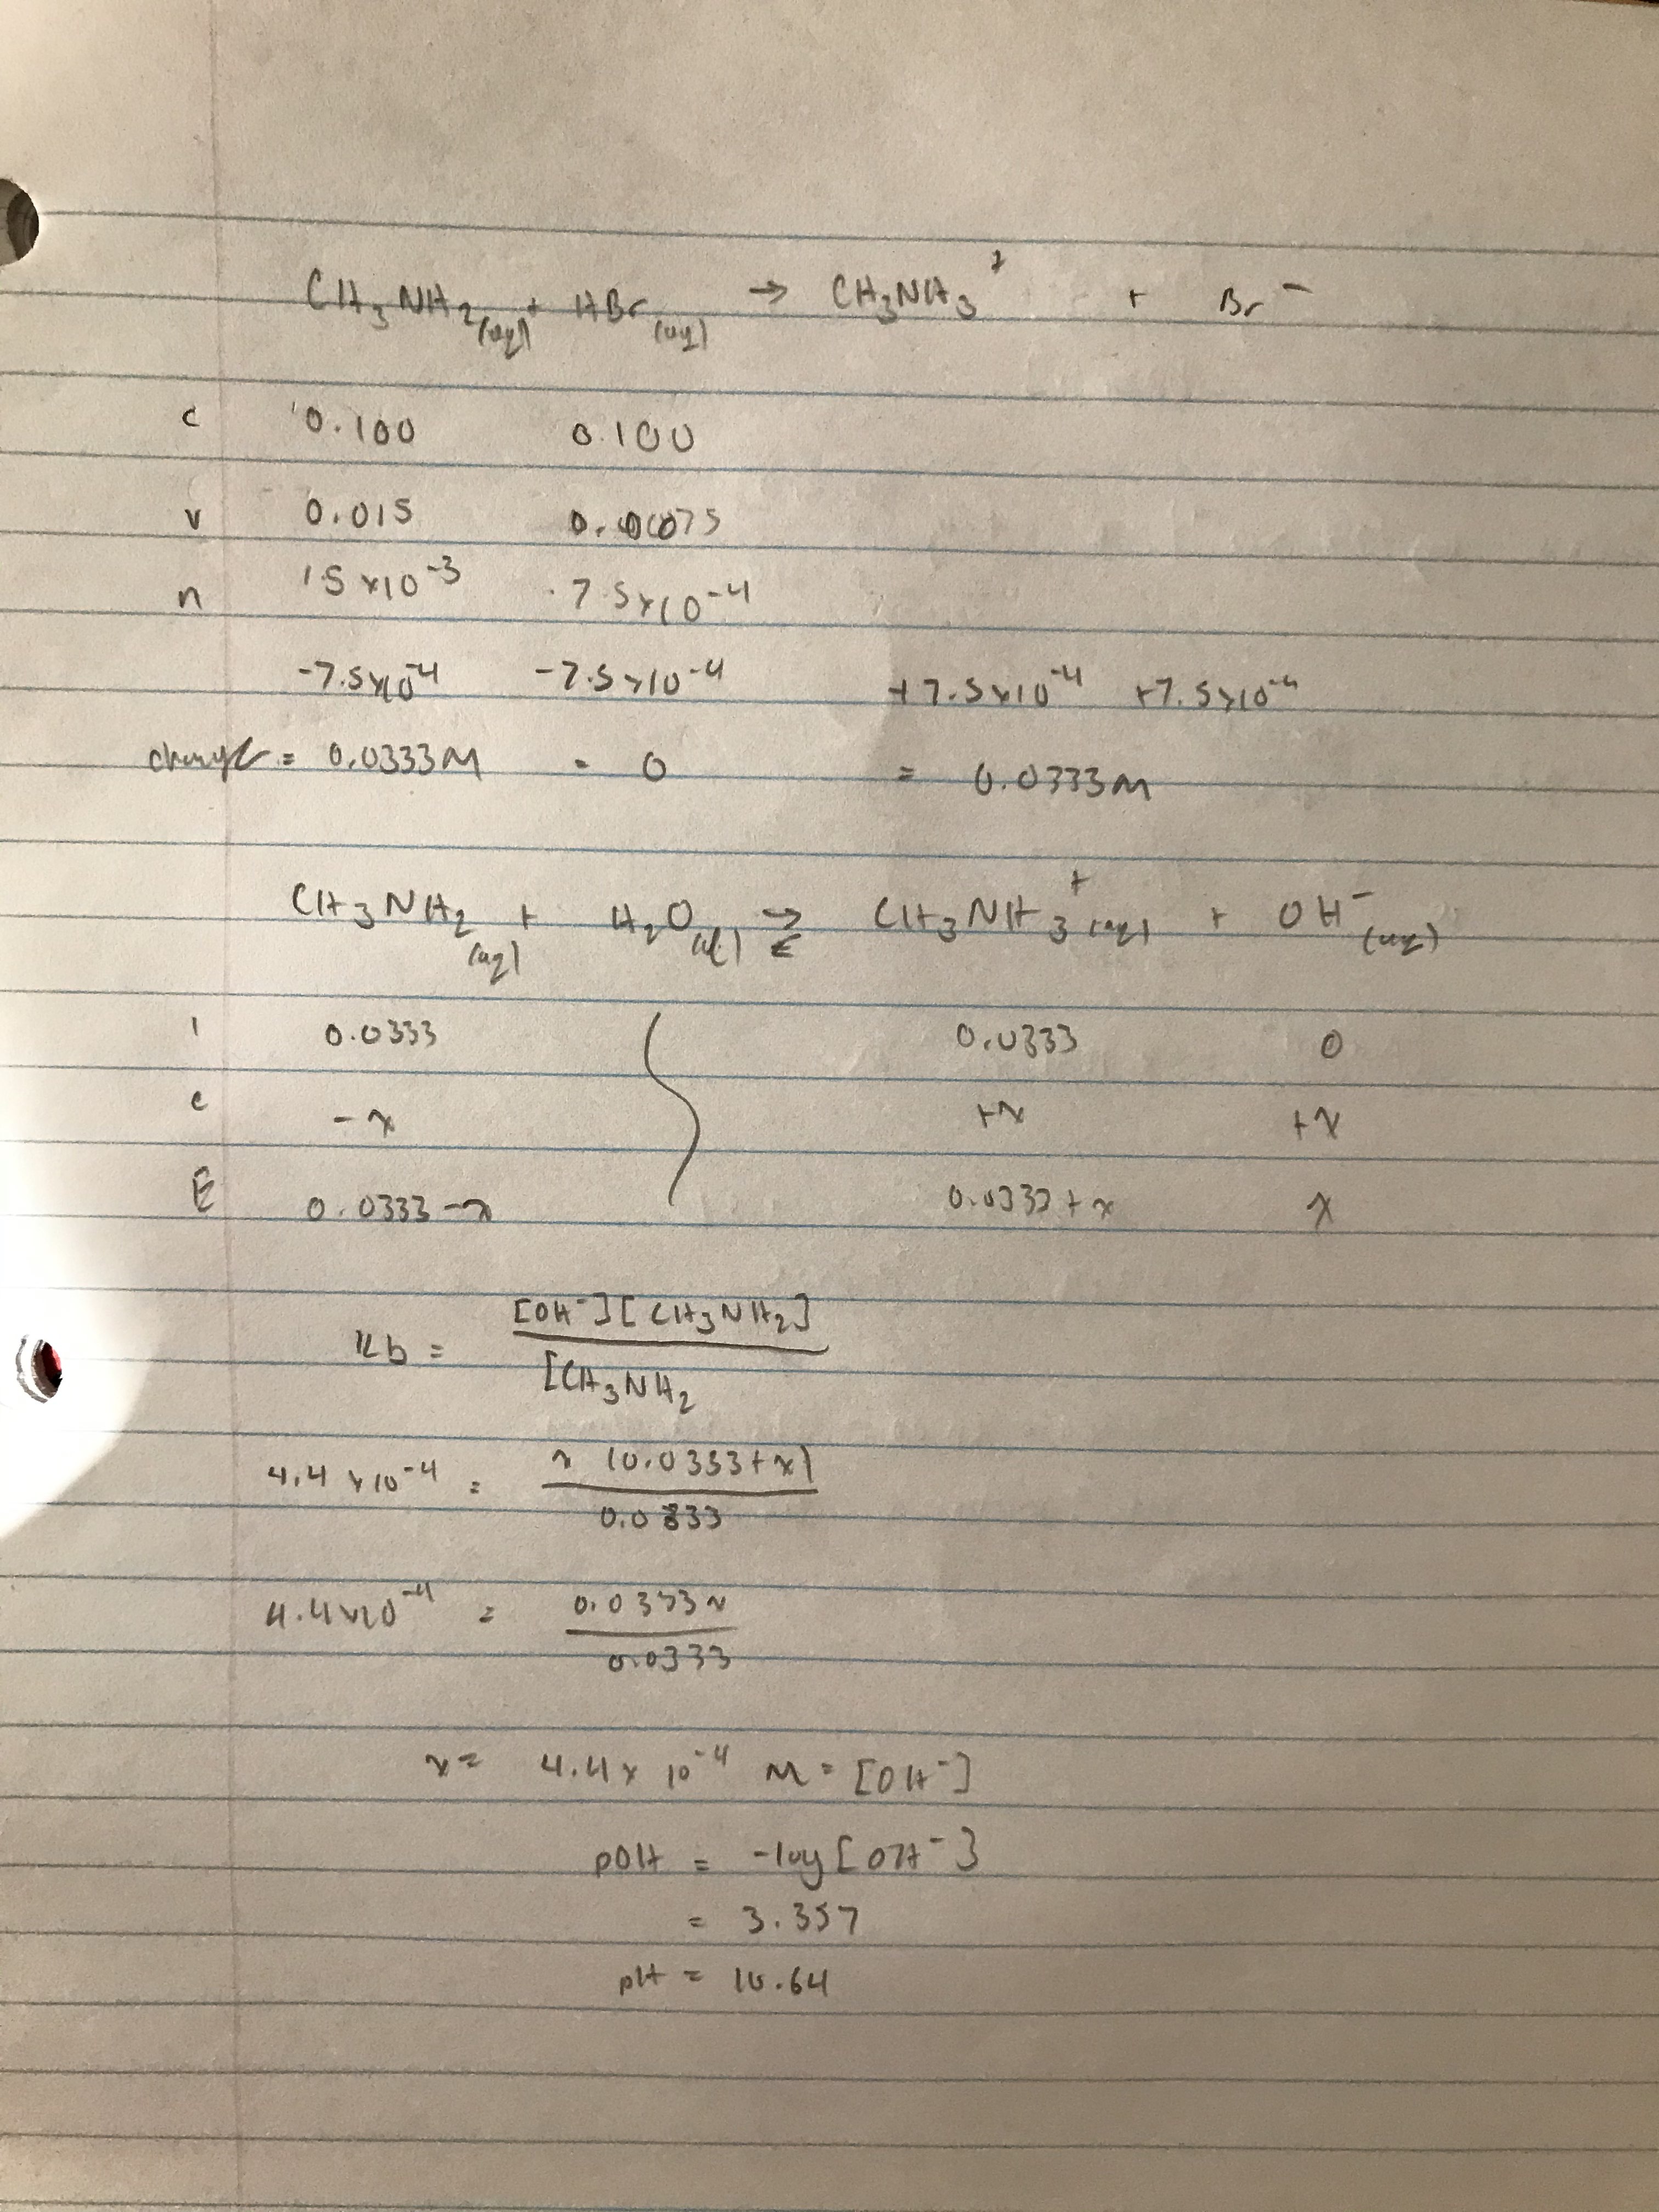 CH₃NH₂(aq) + HBr(aq) → CH₃NH₃⁺ + Br⁻
c 0.100 0.100
v 0.015 0.00075
n 1.5x10⁻³ 7.5x10⁻⁴
-7.5x10⁻⁴ -7.5x10⁻⁴ +7.5x10⁻⁴ +7.5x10⁻⁴
change = 0.0333M = 0 = 0.0333M
CH₃NH₂(aq) + H₂O(l) ⇌ CH₃NH₃⁺(aq) + OH⁻(aq)
I 0.0333 0.0333 0
C -x +x +x
E 0.0333-x 0.0333+x x
Kb = [OH⁻][CH₃NH₂]
[CH₃NH₂
4.4x10⁻⁴ = x(0.0333+x)
0.0333
4.4x10⁻⁴ = 0.0333x
0.0333
x = 4.4x10⁻⁴ M = [OH⁻]
pOH = -log[OH⁻]
= 3.357
pH = 10.64